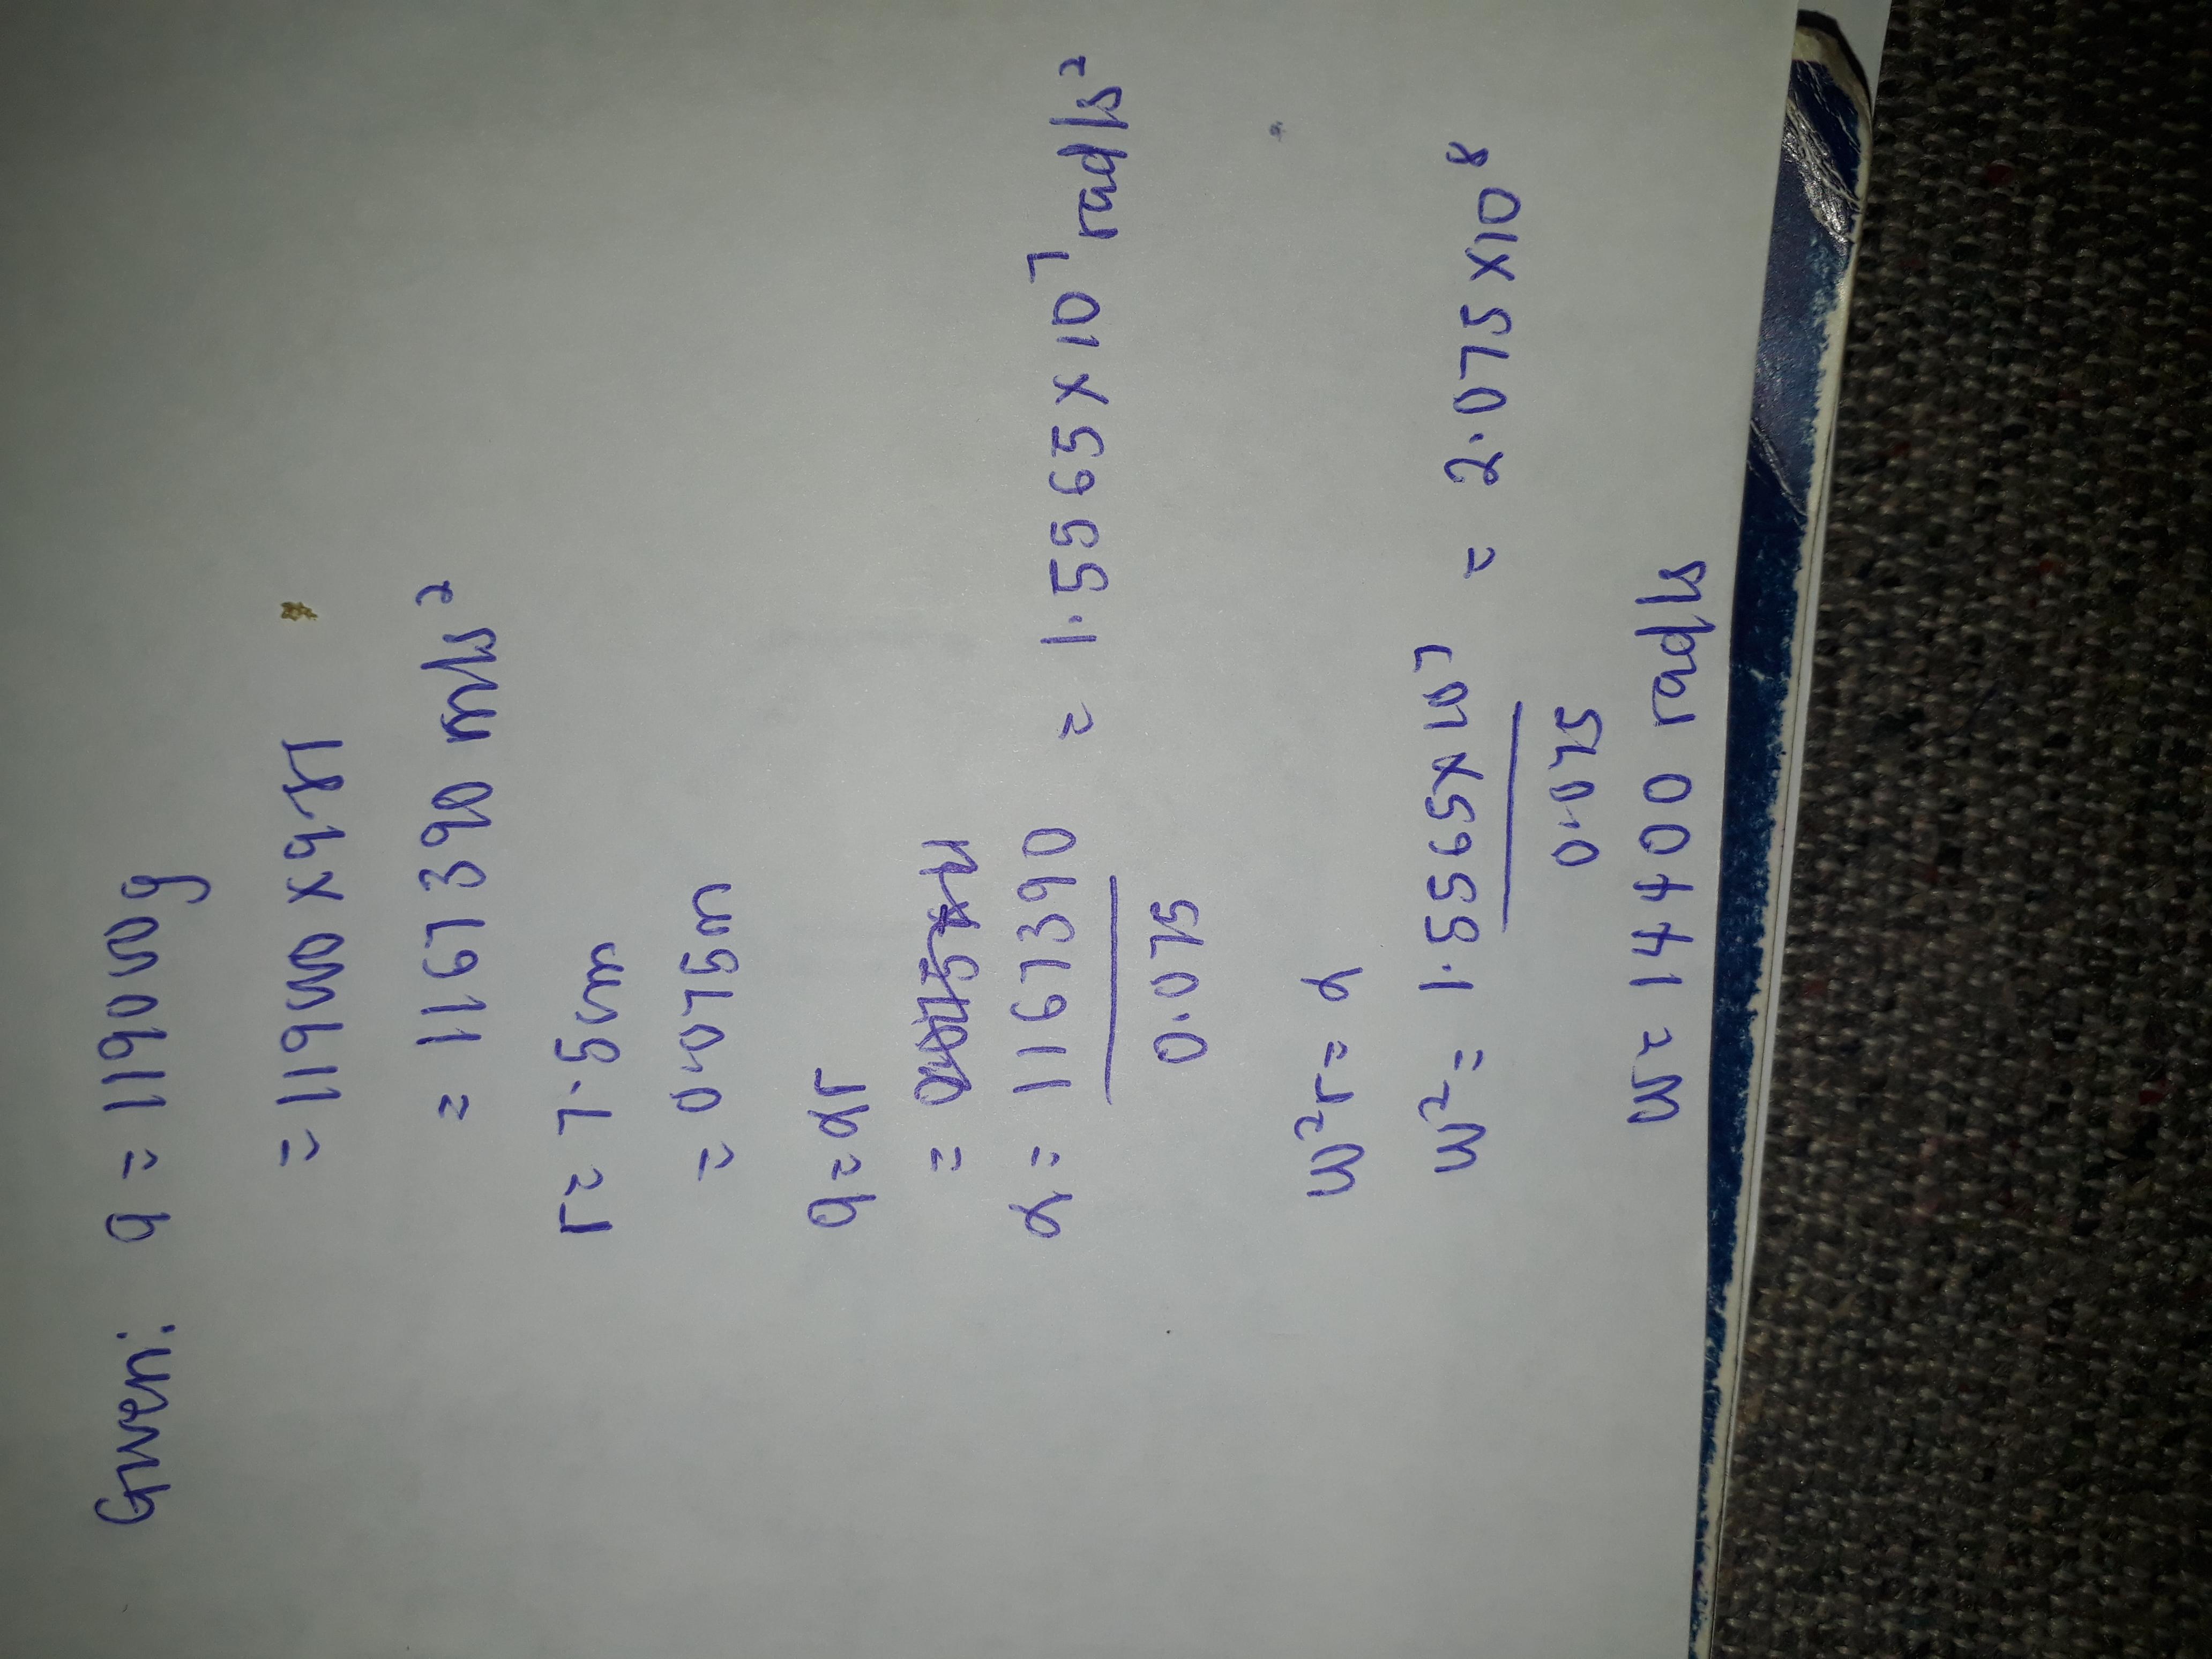 Given: a = 119000g
= 119000 x 9.81
= 1167390 m/s²
r = 7.5cm
= 0.075m
a = αr
α = 1167390 / 0.075 = 1.5565 x 10⁷ rad/s²
w²r = α
w² = 1.5565x10⁷ / 0.075 = 2.075 x10⁸
w = 14400 rad/s